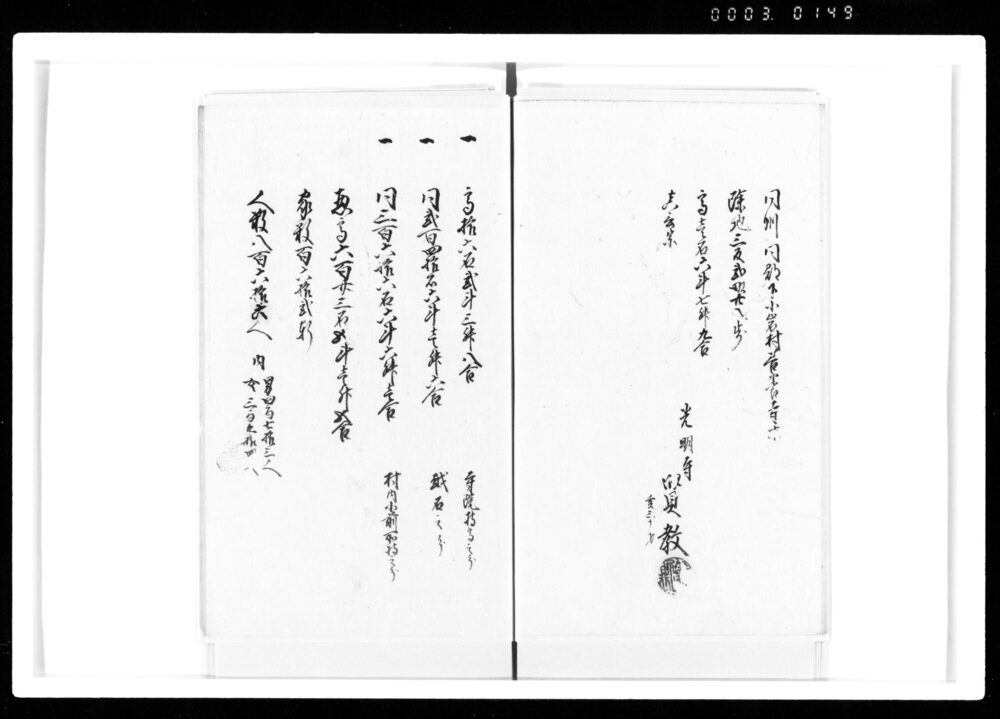 0003. 0149
同州同郡下小岩村
除地三反弐畝廿八歩
高壱石六斗七升九合
真言宗
光明寺
賢教
一 高拾六石弐斗三升八合 寺院持高之分
一 同弐百四拾石六斗壱升六合 越石之分
一 同三百六拾六石六斗六升壱合 村内小前所持之分
惣高六百廿三石五斗壱升五合
家数百六拾弐軒
人数八百六拾七人 内
男四百七拾三人
女三百九拾四人